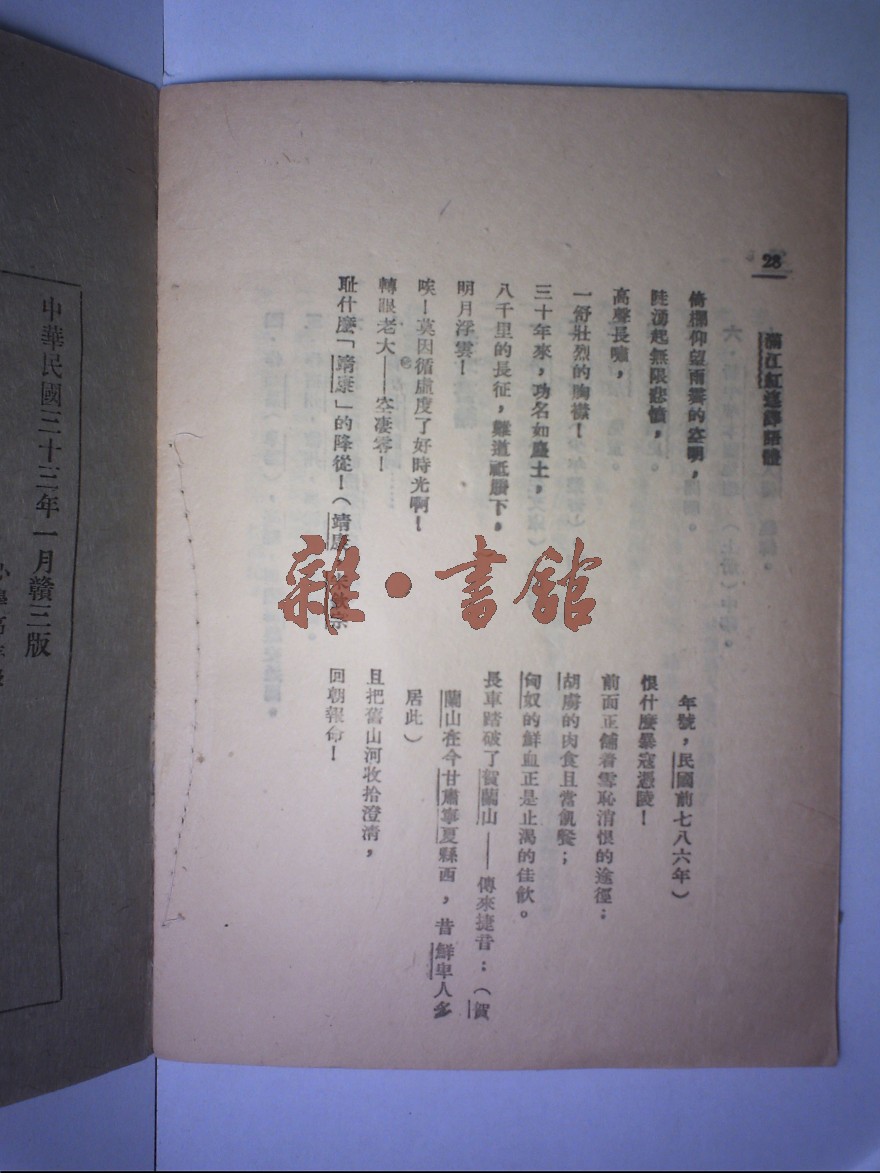 28
滿江紅達譯語體
倚欄仰望雨霽的空明,
陡湧起無限悲憤,
高聲長嘯,
一舒壯烈的胸襟!
三十年來,功名如塵土,
八千里的長征,難道祗賸下,
明月浮雲!
唉!莫因循虛度了好時光啊!
轉眼老大——空凄零!
耻什麽「靖康」的降從!(靖康,宋欽宗
年號,民國前七八六年)
恨什麽暴寇憑陵!
前面正舖着雪恥消恨的途徑;
胡虜的肉食且當飢餐;
匈奴的鮮血正是止渴的佳飲。
長車踏破了賀蘭山——傳來捷音:(賀
蘭山在今甘肅寧夏縣西,昔鮮卑人多
居此)
且把舊山河收拾澄清,
回朝報命!
雜·書館
中華民國三十三年一月贛三版